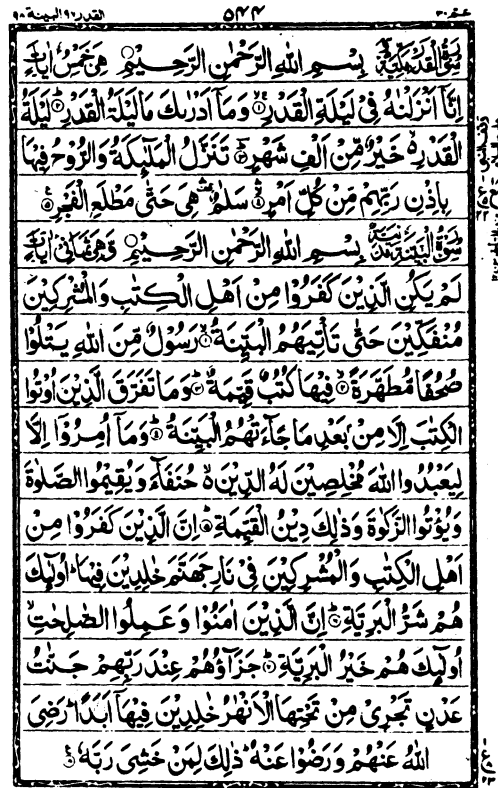 القدر٩٧ البينة٩٨ ٥٤٤ عم٣٠
سورة القدر مكية بسم الله الرحمن الرحيم وهى خمس ايات
اِنَّاۤ اَنْزَلْنٰهُ فِىْ لَيْلَةِ الْقَدْرِ ۚ وَمَاۤ اَدْرٰىكَ مَا لَيْلَةُ الْقَدْرِ ؕ لَيْلَةُ
الْقَدْرِ ۙ خَيْرٌ مِّنْ اَلْفِ شَهْرٍ ؕ تَنَزَّلُ الْمَلٰٓئِكَةُ وَالرُّوْحُ فِيْهَا
بِاِذْنِ رَبِّهِمْ مِّنْ كُلِّ اَمْرٍ ۛ سَلٰمٌ ۛ هِىَ حَتّٰى مَطْلَعِ الْفَجْرِ
سورة البينة مدنية بسم الله الرحمن الرحيم وهى ثمانى ايات
لَمْ يَكُنِ الَّذِيْنَ كَفَرُوْا مِنْ اَهْلِ الْكِتٰبِ وَالْمُشْرِكِيْنَ
مُنْفَكِّيْنَ حَتّٰى تَاْتِيَهُمُ الْبَيِّنَةُ ۙ رَسُوْلٌ مِّنَ اللهِ يَتْلُوْا
صُحُفًا مُّطَهَّرَةً ۙ فِيْهَا كُتُبٌ قَيِّمَةٌ ؕ وَمَا تَفَرَّقَ الَّذِيْنَ اُوْتُوا
الْكِتٰبَ اِلَّا مِنْۢ بَعْدِ مَا جَآءَتْهُمُ الْبَيِّنَةُ ؕ وَمَاۤ اُمِرُوْۤا اِلَّا
لِيَعْبُدُوا اللهَ مُخْلِصِيْنَ لَهُ الدِّيْنَ ۙ حُنَفَآءَ وَيُقِيْمُوا الصَّلٰوةَ
وَيُؤْتُوا الزَّكٰوةَ وَذٰلِكَ دِيْنُ الْقَيِّمَةِ ؕ اِنَّ الَّذِيْنَ كَفَرُوْا مِنْ
اَهْلِ الْكِتٰبِ وَالْمُشْرِكِيْنَ فِىْ نَارِ جَهَنَّمَ خٰلِدِيْنَ فِيْهَا ؕ اُولٰٓئِكَ
هُمْ شَرُّ الْبَرِيَّةِ ؕ اِنَّ الَّذِيْنَ اٰمَنُوْا وَعَمِلُوا الصّٰلِحٰتِ ۙ
اُولٰٓئِكَ هُمْ خَيْرُ الْبَرِيَّةِ ؕ جَزَآؤُهُمْ عِنْدَ رَبِّهِمْ جَنّٰتُ
عَدْنٍ تَجْرِىْ مِنْ تَحْتِهَا الْاَنْهٰرُ خٰلِدِيْنَ فِيْهَاۤ اَبَدًا ؕ رَضِىَ
اللهُ عَنْهُمْ وَرَضُوْا عَنْهُ ؕ ذٰلِكَ لِمَنْ خَشِىَ رَبَّهٗ